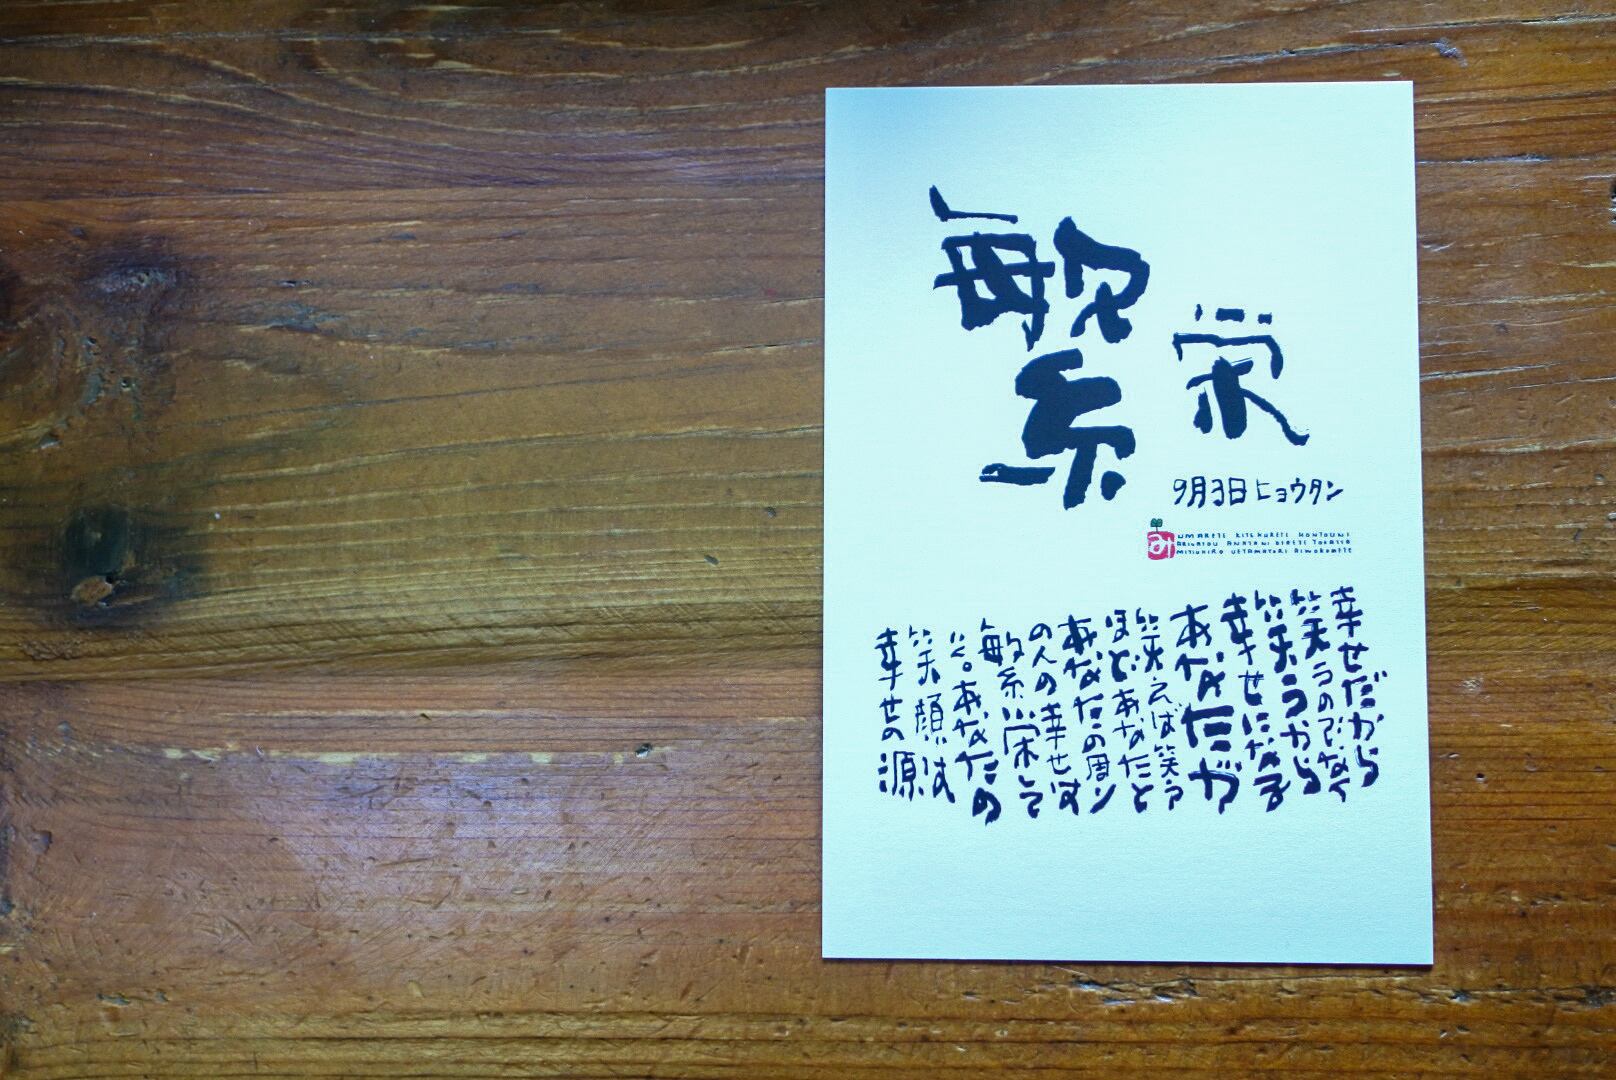 繁栄
9月3日 ヒョウタン
み
UMARETE KITEKURETE HONTOUNI
ARIGATOU ANATANI DEAETE YOKATTA
AIWOKOMETE
幸せだから
笑うのでなく
笑うから
幸せになる
あなたが
笑えば笑う
ほどあなたと
あなたの周り
の人の幸せは
繁栄して
いく。あなたの
笑顔は
幸せの源